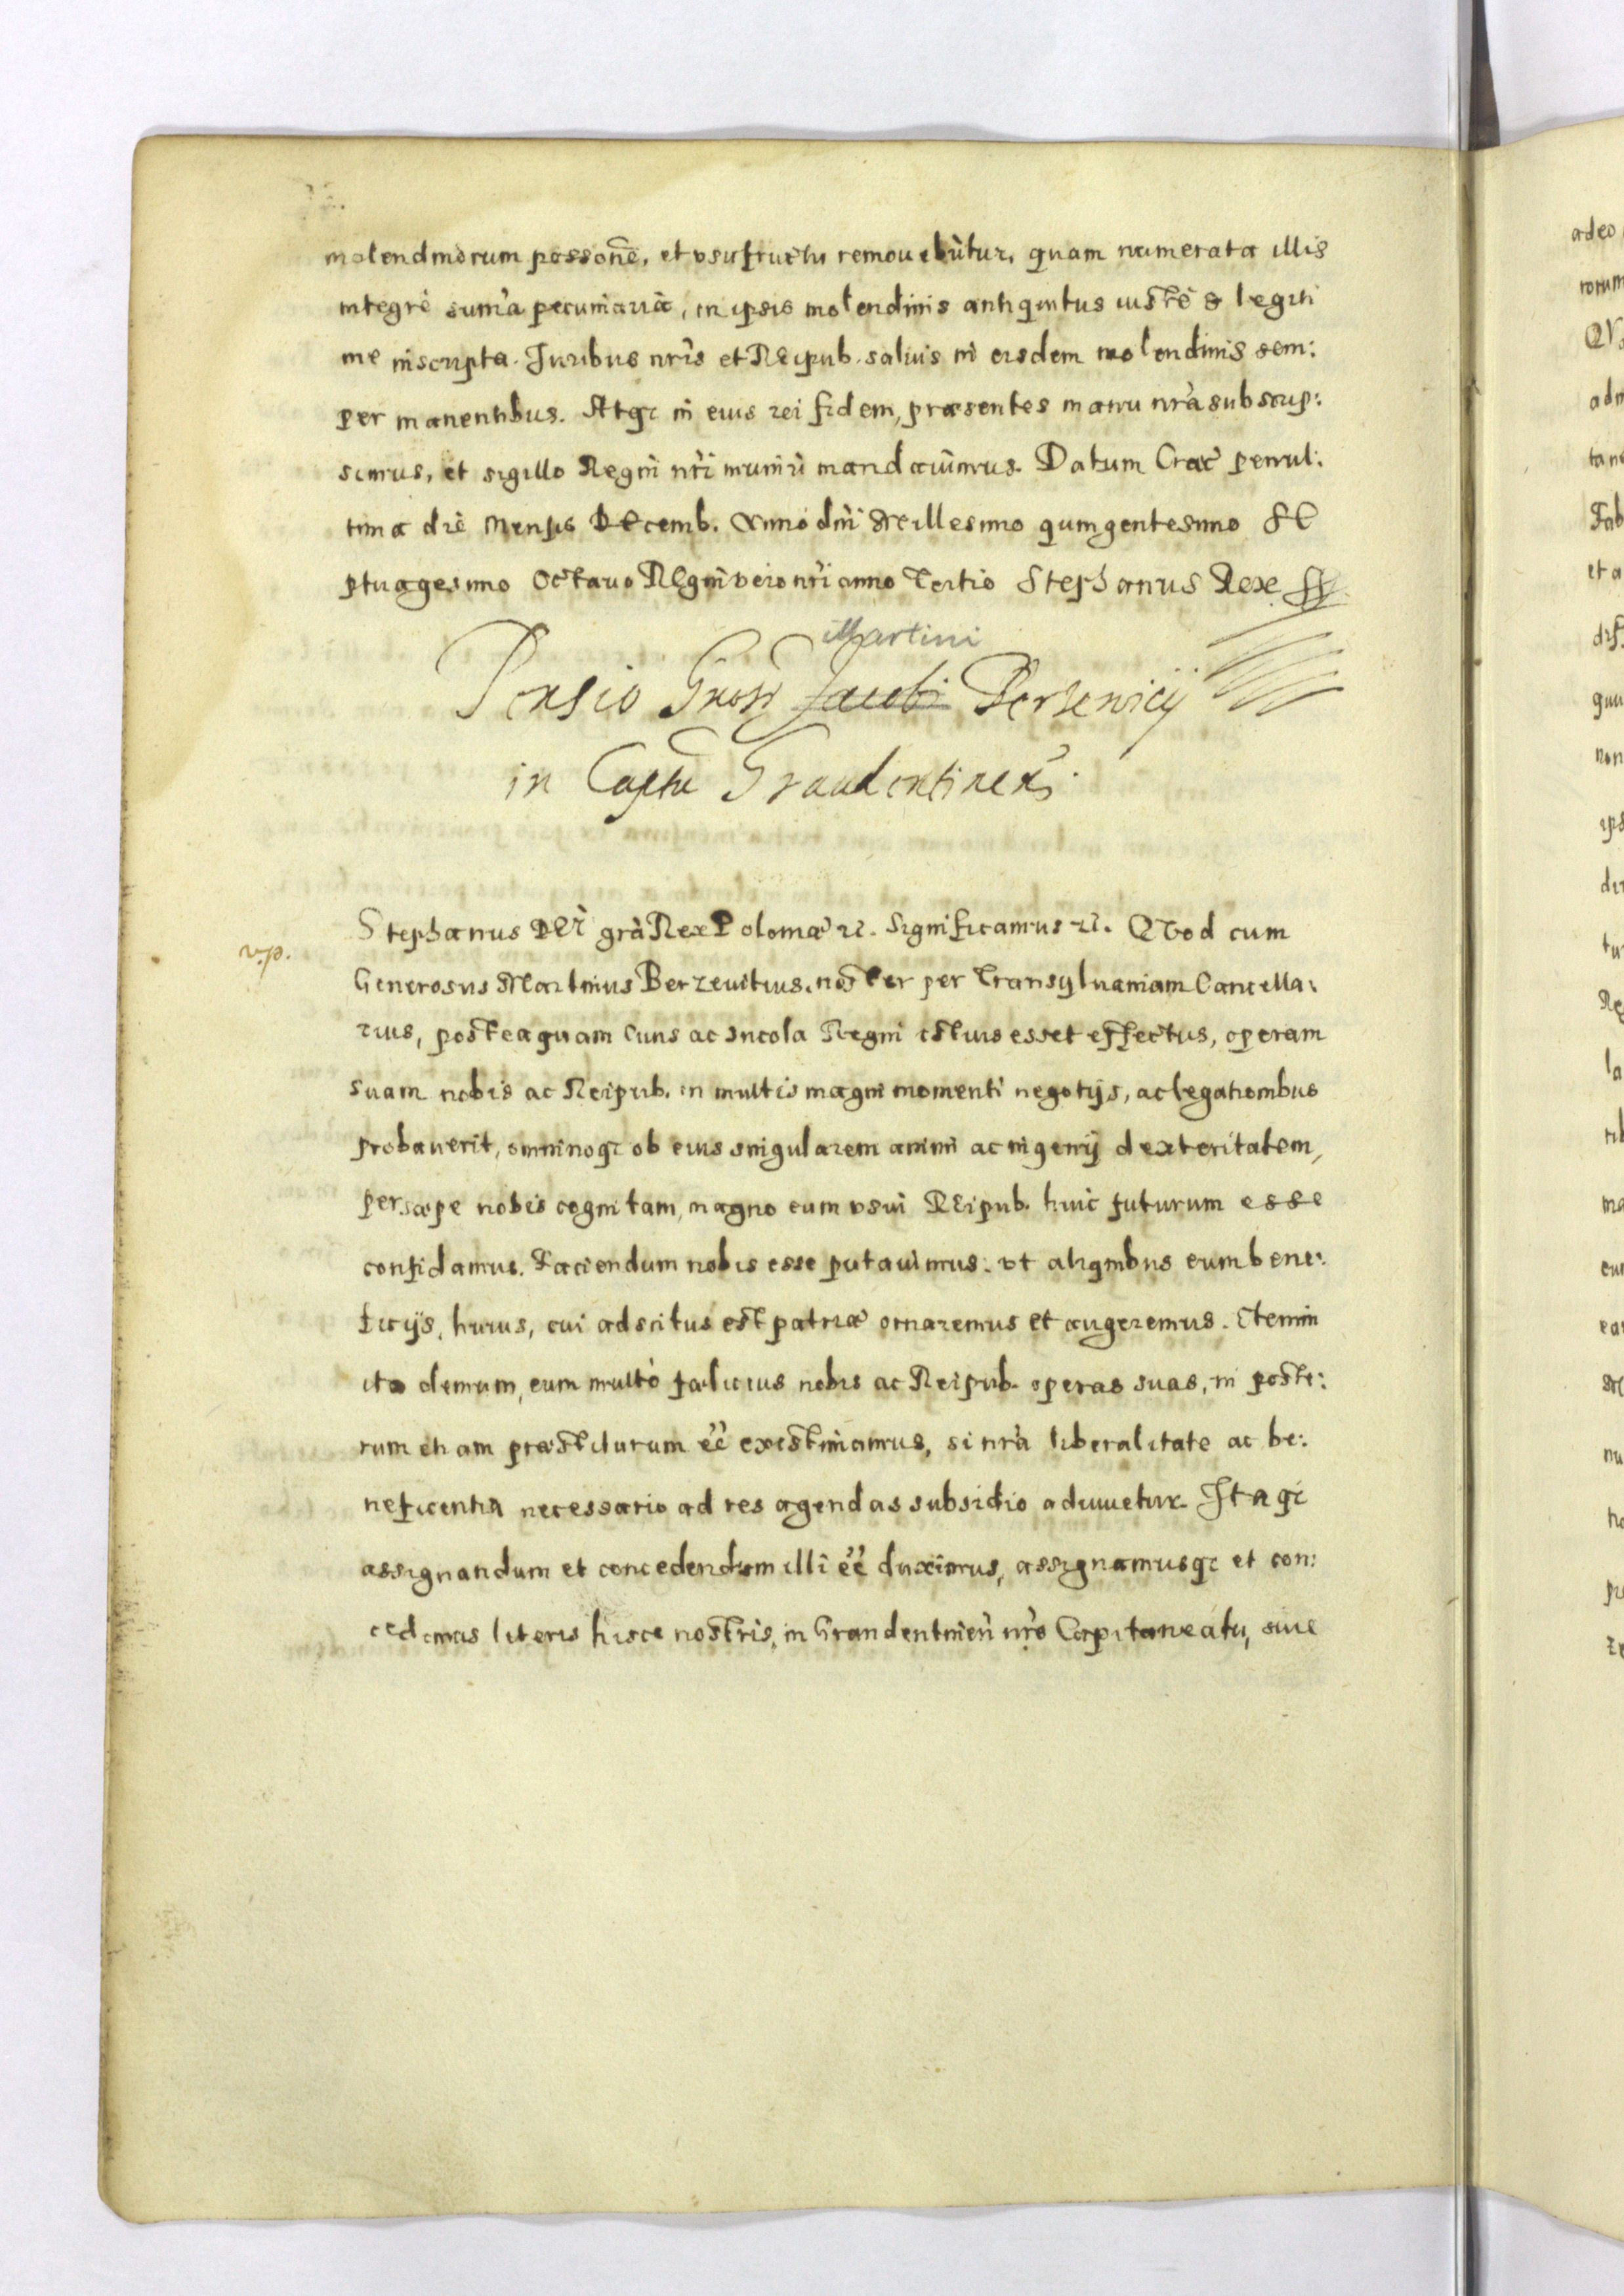 molendinorum possonē, et vsufructu remouebūtur, quam numerata illis
integrè sum̃a pecuniaria, in ipsis molendinis antiquitus iustè & legiti
me inscripta. Juribus nr̃is et Reipub. saluis in eisdem molendinis sem:
per manentibus. Atq; in eius rei fidem, præsentes manu nr̃a subscrip:
simus, et sigillo Regni nr̃i muniri mandauimus. Datum Crac̃ penul:
tima die Mensis Decemb. Anno dñi Millesimo quingentesimo Se
ptuagesimo Octauo Regni vero nr̃i anno Tertio Stephanus Rex
Martini
Pensio Gnosi Jacobi Berzenicij
in Captu Graudentinen̄.
v.p.
Stephanus Dei grà Rex Poloniæ rc. Significamus rc. Quod cum
Generosus Martinus Berzeuitius. noster per Transyluaniam Cancella:
rius, posteaquam Ciuis ac Incola Regni istius esset effectus, operam
suam nobis ac Reipub. in multis magni momenti negotijs, ac legationibus
probauerit, omninoq; ob eius singularem animi ac ingenij dexteritatem,
persæpe nobis cognitam, magno eum vsui Reipub. huic futurum esse
confidamus. Faciendum nobis esse putauimus. vt aliquibus eum bene:
ficijs, huius, cui adscitus est patriæ ornaremus et augeremus. Etenim
ita demum, eum multò fælicius nobis ac Reipub. operas suas, in poste:
rum etiam præstiturum ẽẽ existimamus, si nr̃a liberalitate ac be:
neficentia necessario ad res agendas subsidio adiuuetur. Itaq;
assignandum et concedendum illi ẽẽ duximus, assignamusq; et con:
cedimus literis hisce nostris, in Graudentineñ nr̃o Capitaneatu, siue